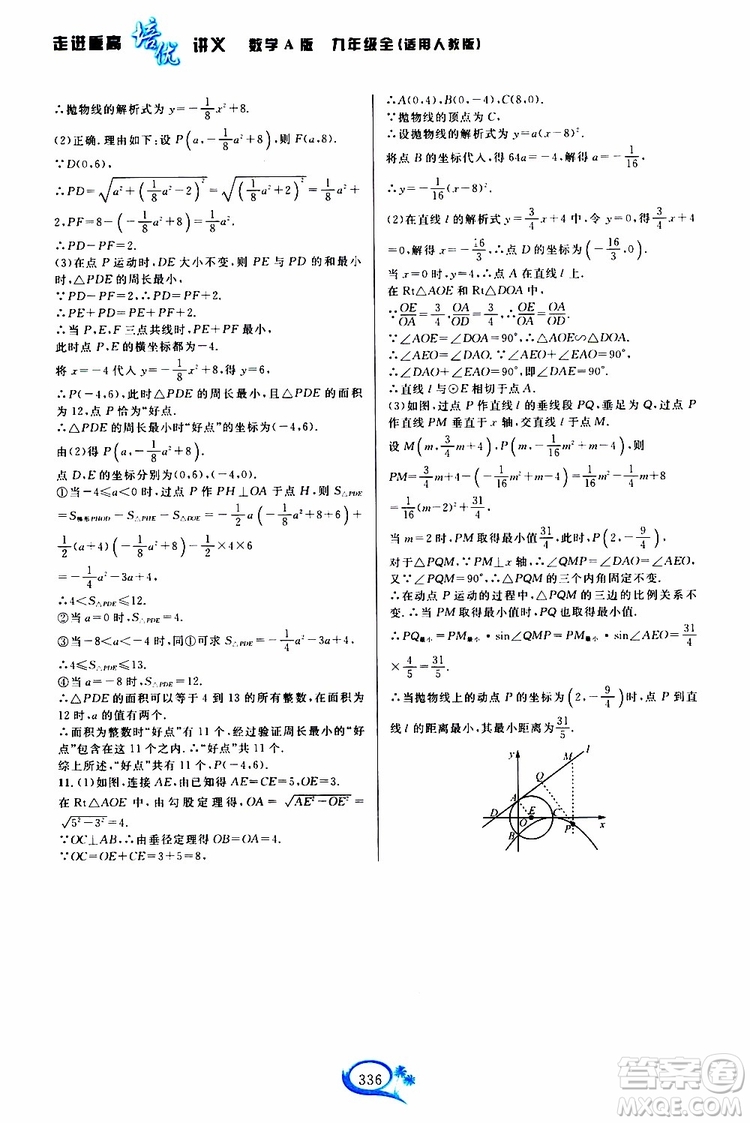 走进重高 培优 讲义 数学A版 九年级全(适用人教版)
∴抛物线的解析式为 y=-1/8x²+8.
(2)正确. 理由如下:设 P(a,-1/8a²+8),则 F(a,8).
∵D(0,6),
∴PD=√(a²+(1/8a²-2)²)=√((1/8a²+2)²)=1/8a²+
2,PF=8-(-1/8a²+8)=1/8a².
∴PD-PF=2.
(3)在点 P 运动时,DE 大小不变,则 PE 与 PD 的和最小
时,△PDE 的周长最小,
∵PD-PF=2,∴PD=PF+2.
∴PE+PD=PE+PF+2.
∴当 P,E,F 三点共线时,PE+PF 最小,
此时点 P,E 的横坐标都为-4.
将 x=-4 代入 y=-1/8x²+8,得 y=6,
∴P(-4,6),此时△PDE 的周长最小,且△PDE 的面积
为 12,点 P 恰为“好点.
∴△PDE 的周长最小时“好点”的坐标为(-4,6).
由(2)得 P(a,-1/8a²+8),
点 D,E 的坐标分别为(0,6),(-4,0).
①当-4≤a<0 时,过点 P 作 PH⊥OA 于点 H,S△PDE
=S梯形PHOD-S△PHE-S△DOE=-a(-1/8a²+8+6)÷
1/2(a+4)(-1/8a²+8)-1/2×4×6
=-1/4a²-3a+4.
∴4<S△PDE≤12.
②当 a=0 时,S△PDE=4.
③当-8<a<-4 时,同①可求 S△PDE=-1/4a²-3a+4.
∴4≤S△PDE≤13.
④当 a=-8 时,S△PDE=4.
∴△PDE 的面积可以等于 4 到 13 的所有整数,在面积为
12 时,a 的值有两个.
∴面积为整数时“好点”有 11 个,经过验证周长最小的“好
点”包含在这 11 个之中.∴“好点”共有 11 个.
综上所述,“好点”有 11 个,P(-4,6).
11. (1)如图,连接 AE,由已知得 AE=CE=5,OE=3.
在 Rt△AOE 中,由勾股定理得,OA=√(AE²-OE²)=
√(5²-3²)=4.
∵OC⊥AB,∴由垂径定理得 OB=OA=4.
∵OC=OE+CE=3+5=8,
∴A(0,4),B(0,-4),C(8,0).
∵抛物线的顶点为 C,
∴设抛物线的解析式为 y=a(x-8)².
将点 B 的坐标代入,得 64a=-4,解得 a=-1/16.
∴y=-1/16(x-8)².
(2)在直线 l 的解析式 y=3/4x+4 中,令 y=0,得 3/4x+4
=0,解得 x=-16/3,∴点 D 的坐标为(-16/3,0).
当 x=0 时,y=4,∴点 A 在直线 l 上.
在 Rt△AOE 和 Rt△DOA 中,
∵OE/OA=3/4,OA/OD=3/4,∴OE/OA=OA/OD.
∵∠AOE=∠DOA=90°,∴△AOE∽△DOA.
∴∠AEO=∠DAO. ∵∠AEO+∠EAO=90°,
∴∠DAO+∠EAO=90°,即∠DAE=90°.
∴直线 l 与⊙E 相切于点 A.
(3)如图,过点 P 作直线 l 的垂线段 PQ,垂足为 Q,过点 P
作直线 PM 垂直于 x 轴,交直线 l 于点 M.
设 M(m,3/4m+4),P(m,-1/16(m-8)²),则
PM=3/4m+4-[-1/16(m-8)²]=1/16m²-1/4m+8
=1/16(m-2)²+31/4.
当 m=2 时,PM 取得最小值31/4,此时,P(2,-9/4).
对于△PQM,∵PM⊥x 轴,∴∠QMP=∠DAO=∠AEO.
又∵∠PQM=90°,∴△PQM 的三个内角固定不变.
∴在动点 P 运动的过程中,△PQM 的三边的比例关系不
变.∴当 PM 取得最小值时,PQ 也取得最小值,
∴PQ最小=PM最小·sin∠QMP=PM最小·sin∠AEO=31/4
×4/5=31/5.
∴当抛物线上的动点 P 的坐标为(2,-9/4)时,点 P 到直
线 l 的距离最小,其最小距离为31/5.
y M l
Q
A
D O E C
P x
B
336
答案圈
MXQE.COM